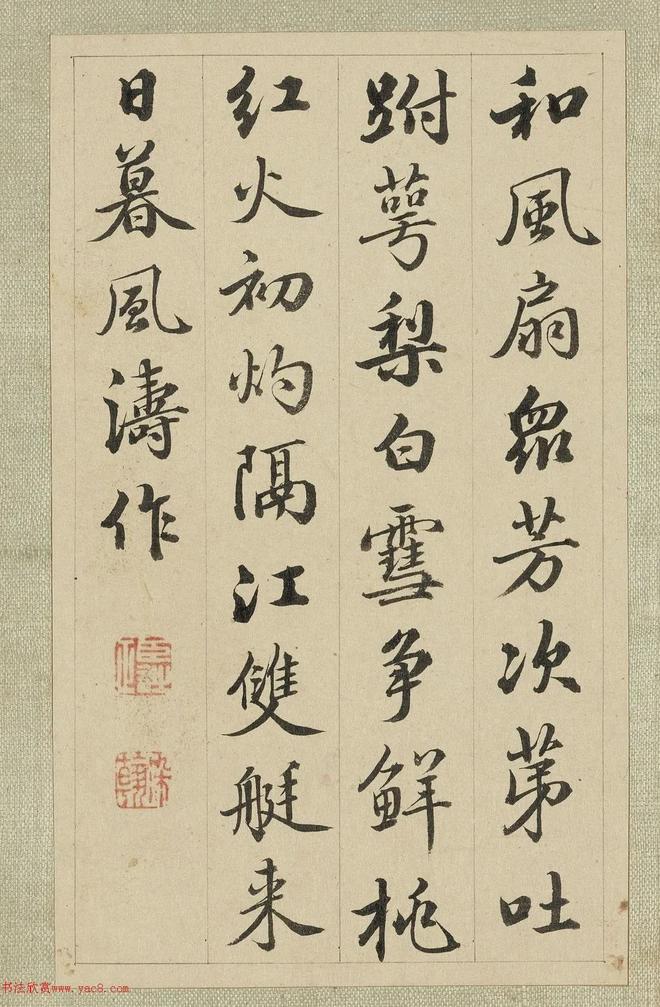 和風扇衆芳次苐吐
跗萼梨白雪争鮮桃
紅火初灼隔江雙艇来
日暮風濤作
书法欣赏www.yac8.com